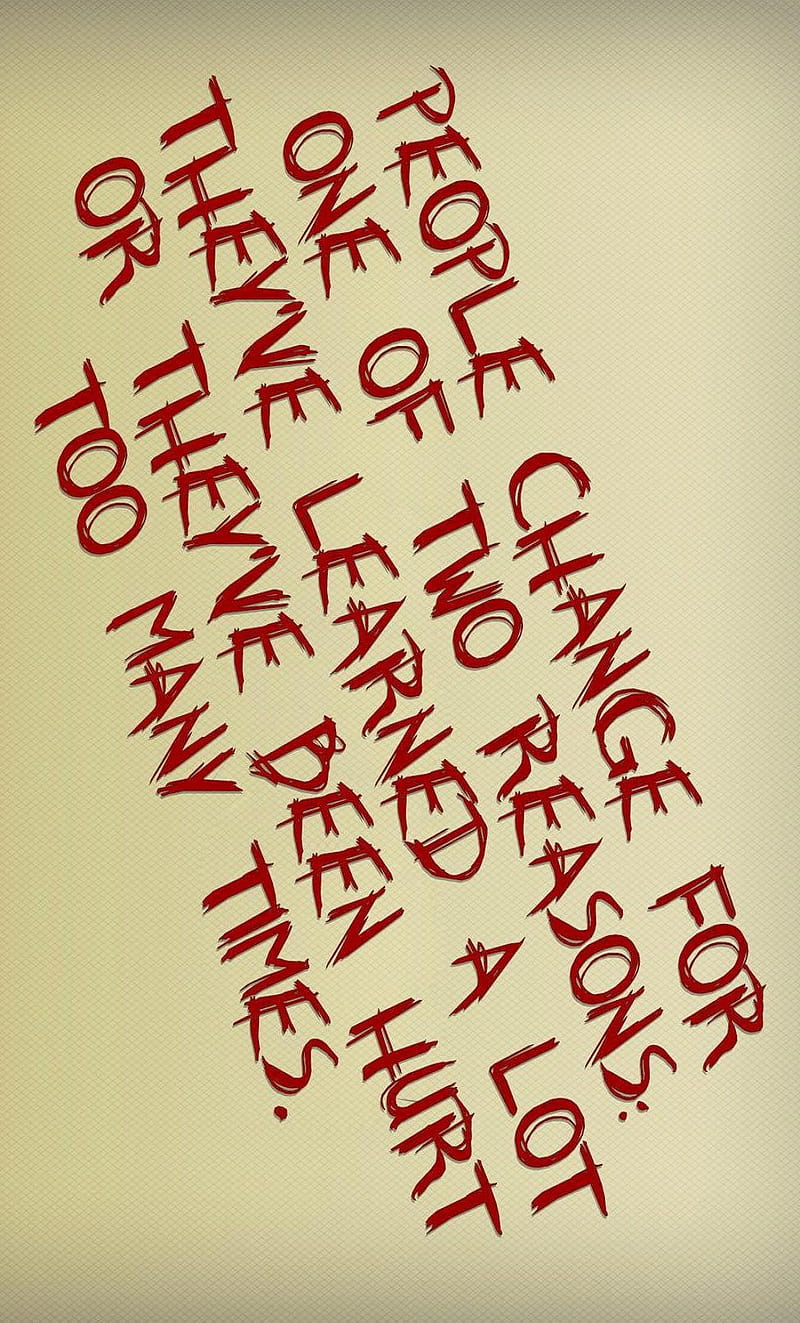 PEOPLE CHANGE FOR
ONE OF TWO REASONS:
THEY'VE LEARNED A LOT
OR THEY'VE BEEN HURT
TOO MANY TIMES.